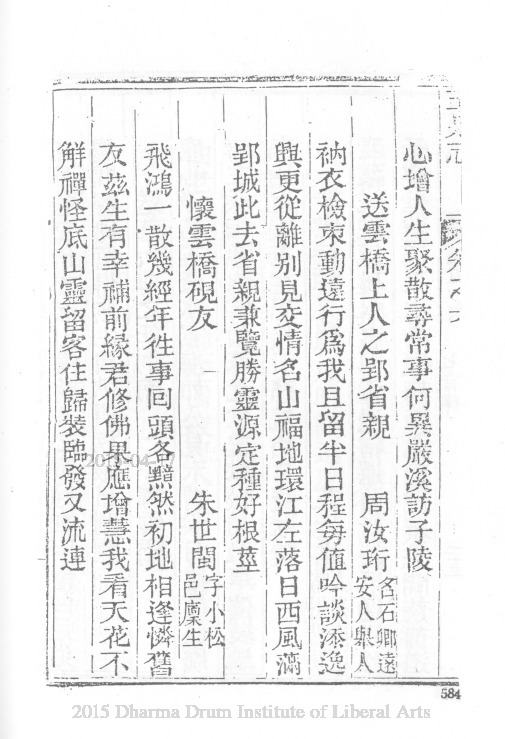 心增人生聚散尋常事何異嚴溪訪子陵
送雲橋上人之郢省親 周汝珩 名石卿遠安人舉人
衲衣檢束動遠行爲我且留半日程每值吟談添逸
興更從離別見交情名山福地環江左落日西風滿
郢城此去省親兼覽勝靈源定種好根莖
懷雲橋硯友 朱世閩 字小松邑廩生
飛鴻一散幾經年徃事回頭各黯然初地相逢憐舊
友兹生有幸補前緣君修佛果應增慧我看天花不
解禪怪底山靈留客住歸裝臨發又流連
584
2015 Dharma Drum Institute of Liberal Arts